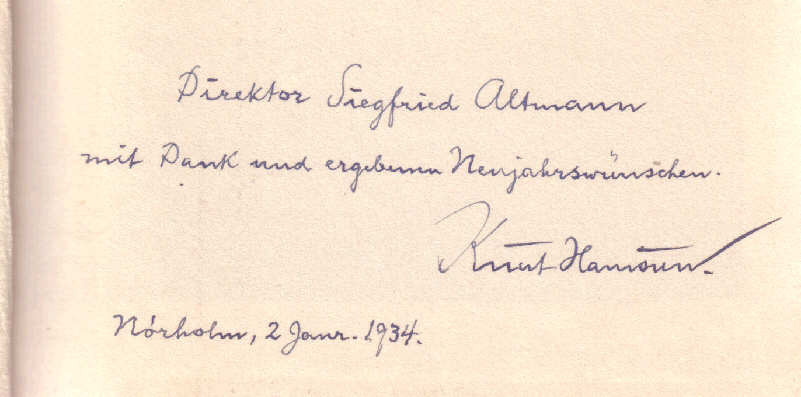 Direktor Siegfried Altmann
mit Dank und ergebenen Neujahrswünschen.
Knut Hamsun.
Nörholm, 2 Janr. 1934.